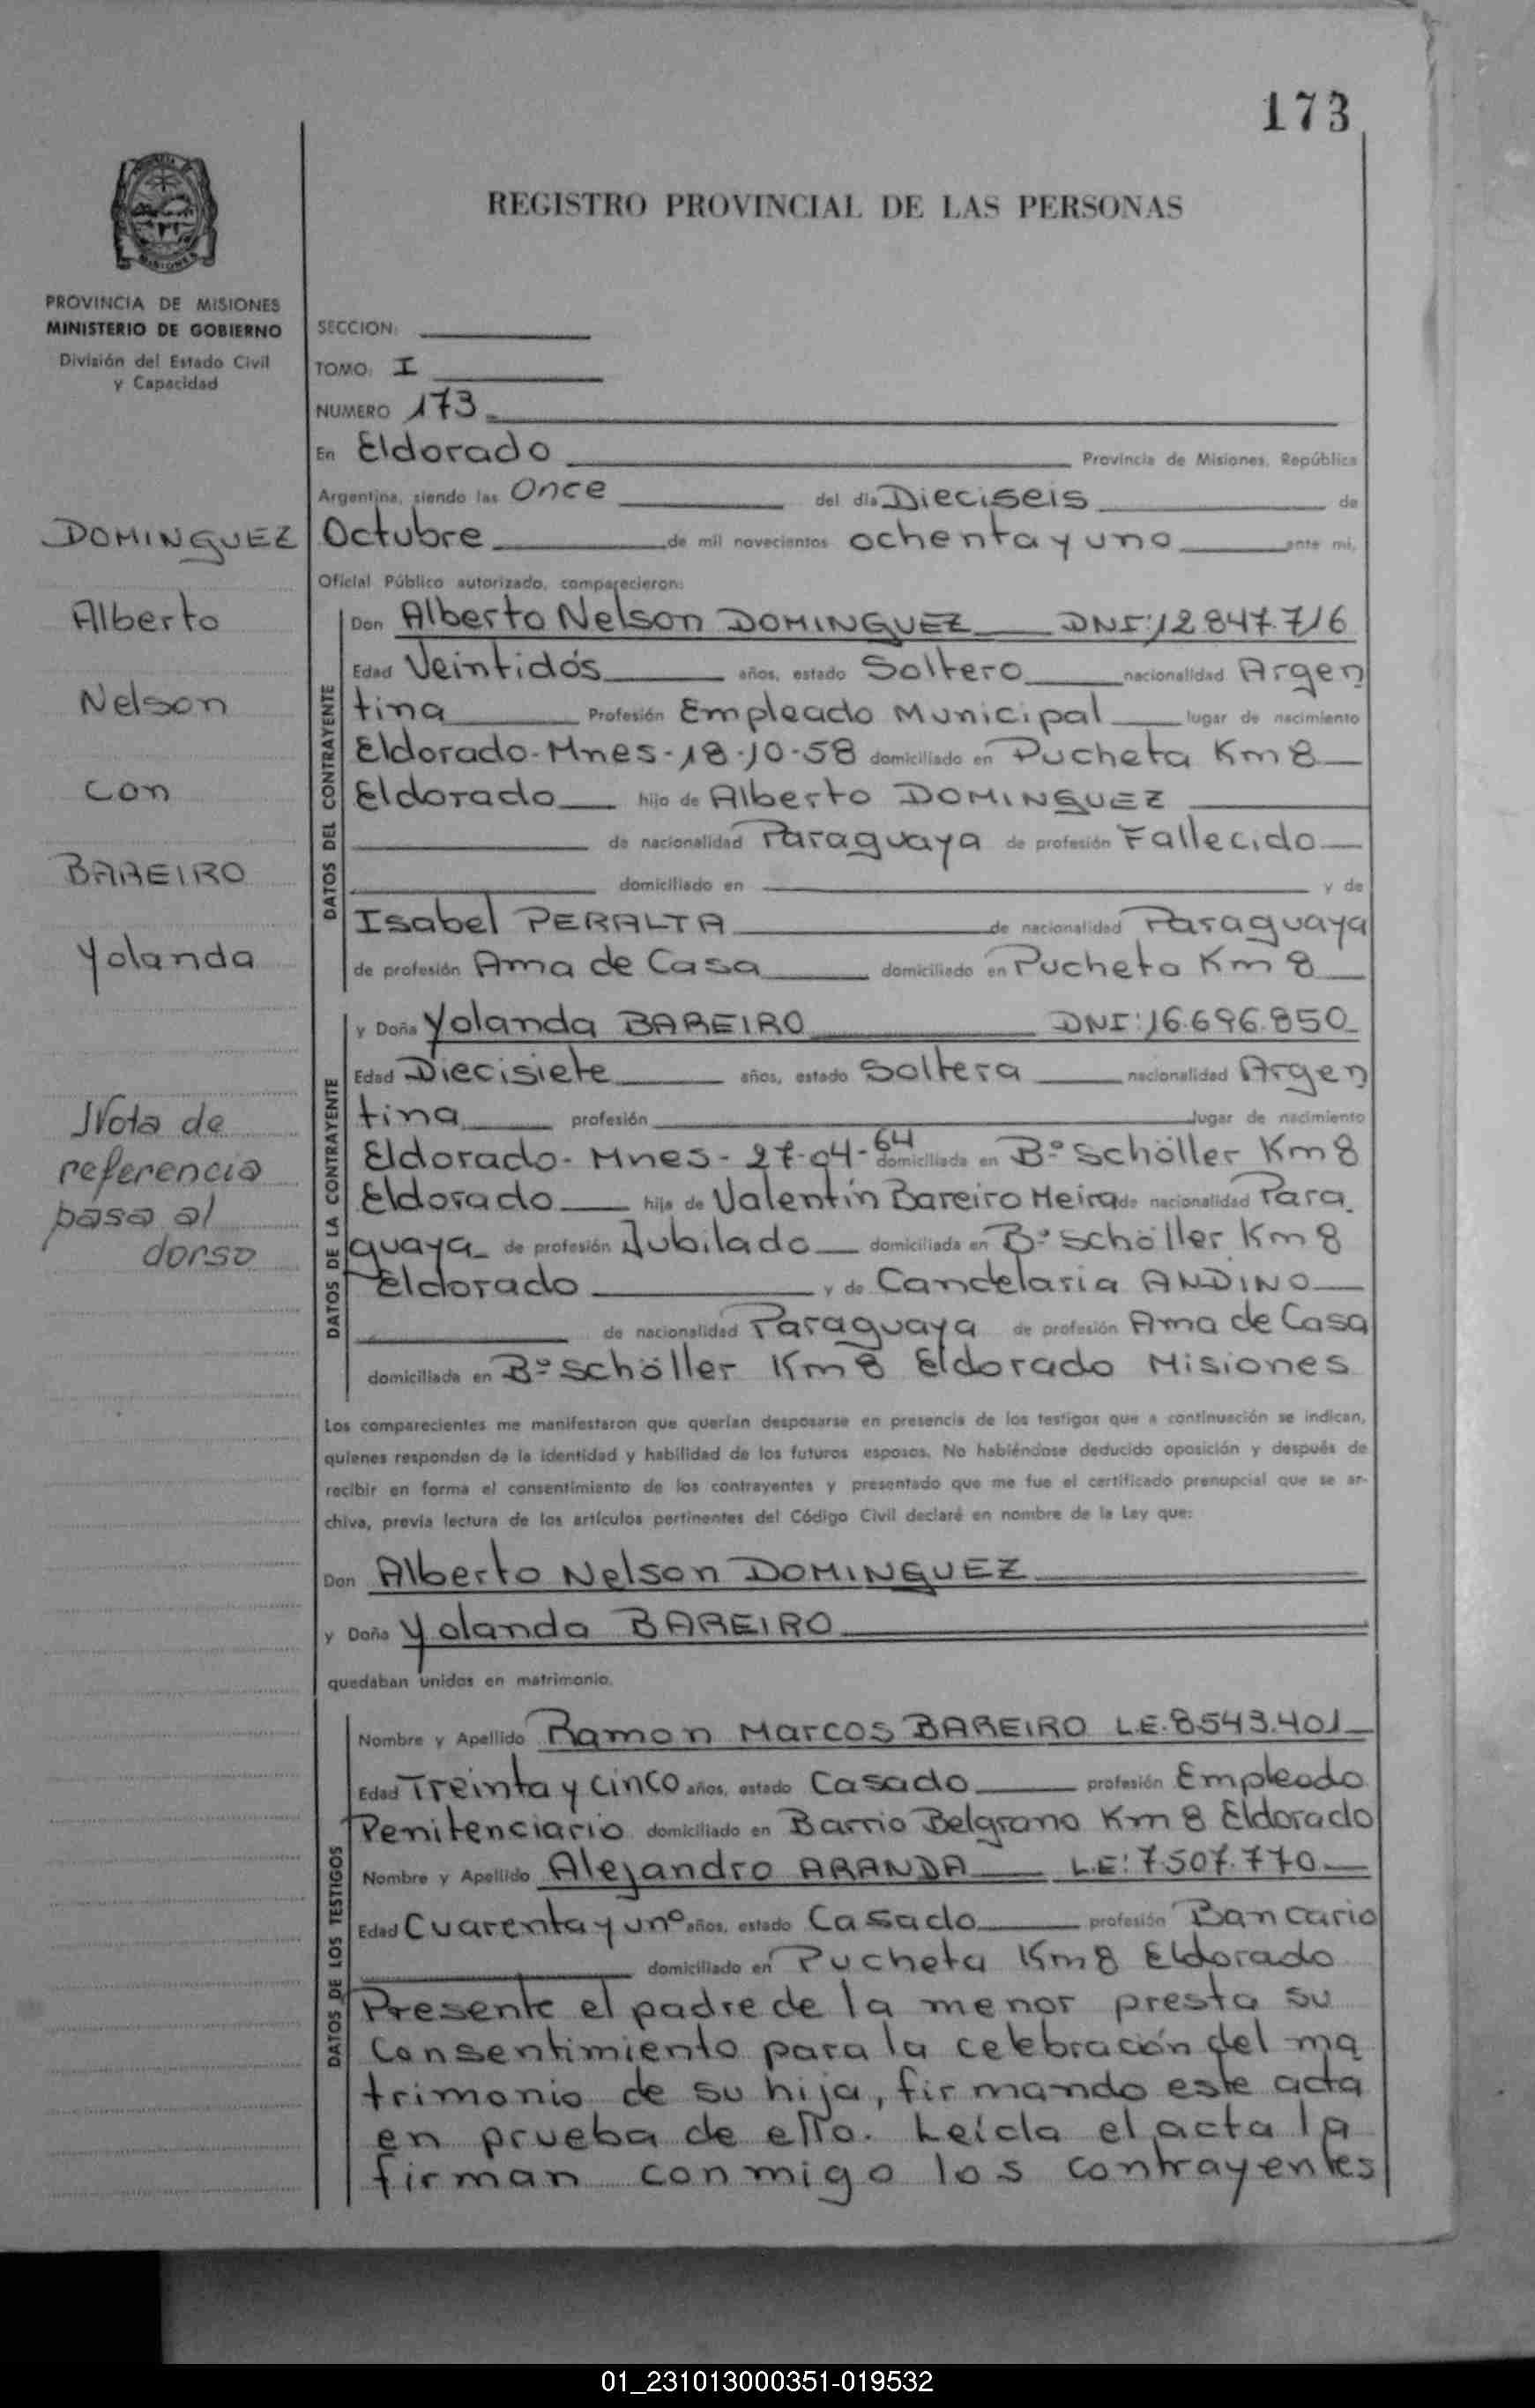 173
REGISTRO PROVINCIAL DE LAS PERSONAS
MISIONES
PROVINCIA DE MISIONES
MINISTERIO DE GOBIERNO
División del Estado Civil
y Capacidad
DOMINGUEZ
Alberto
Nelson
con
BAREIRO
Yolanda
Nota de
referencia
pasa al
dorso
SECCION:
TOMO: I
NUMERO 173
En Eldorado Provincia de Misiones, República
Argentina, siendo las Once del día Dieciseis de
Octubre de mil novecientos ochenta y uno ante mí,
Oficial Público autorizado, comparecieron:
DATOS DEL CONTRAYENTE
Don Alberto Nelson DOMINGUEZ DNI: 12.847.716
Edad Veintidós años, estado Soltero nacionalidad Argen
tina Profesión Empleado Municipal lugar de nacimiento
Eldorado-Mnes-18-10-58 domiciliado en Pucheta Km 8
Eldorado hijo de Alberto DOMINGUEZ
de nacionalidad Paraguaya de profesión Fallecido
domiciliado en y de
Isabel PERALTA de nacionalidad Paraguaya
de profesión Ama de Casa domiciliado en Pucheta Km 8
DATOS DE LA CONTRAYENTE
y Doña Yolanda BAREIRO DNI: 16.696.850
Edad Diecisiete años, estado Soltera nacionalidad Argen
tina profesión lugar de nacimiento
Eldorado-Mnes-27-04-64 domiciliada en Bº Schöller Km 8
Eldorado hija de Valentín Bareiro Meira de nacionalidad Para
guaya de profesión Jubilado domiciliada en Bº Schöller Km 8
Eldorado y de Candelaria ANDINO
de nacionalidad Paraguaya de profesión Ama de Casa
domiciliada en Bº Schöller Km 8 Eldorado Misiones
Los comparecientes me manifestaron que querían desposarse en presencia de los testigos que a continuación se indican,
quienes responden de la identidad y habilidad de los futuros esposos. No habiéndose deducido oposición y después de
recibir en forma el consentimiento de los contrayentes y presentado que me fue el certificado prenupcial que se ar-
chiva, previa lectura de los artículos pertinentes del Código Civil declaré en nombre de la Ley que:
Don Alberto Nelson DOMINGUEZ
y Doña Yolanda BAREIRO
quedaban unidos en matrimonio.
DATOS DE LOS TESTIGOS
Nombre y Apellido Ramon Marcos BAREIRO L.E. 8.543.401
Edad Treinta y cinco años, estado Casado profesión Empleado
Penitenciario domiciliado en Barrio Belgrano Km 8 Eldorado
Nombre y Apellido Alejandro ARANDA L.E: 7.507.770
Edad Cuarenta y uno años, estado Casado profesión Bancario
domiciliado en Pucheta Km 8 Eldorado
Presente el padre de la menor presta su
Consentimiento para la celebración del ma
trimonio de su hija, firmando este acta
en prueba de ello. Leída el acta la
firman conmigo los contrayentes
01_231013000351-019532